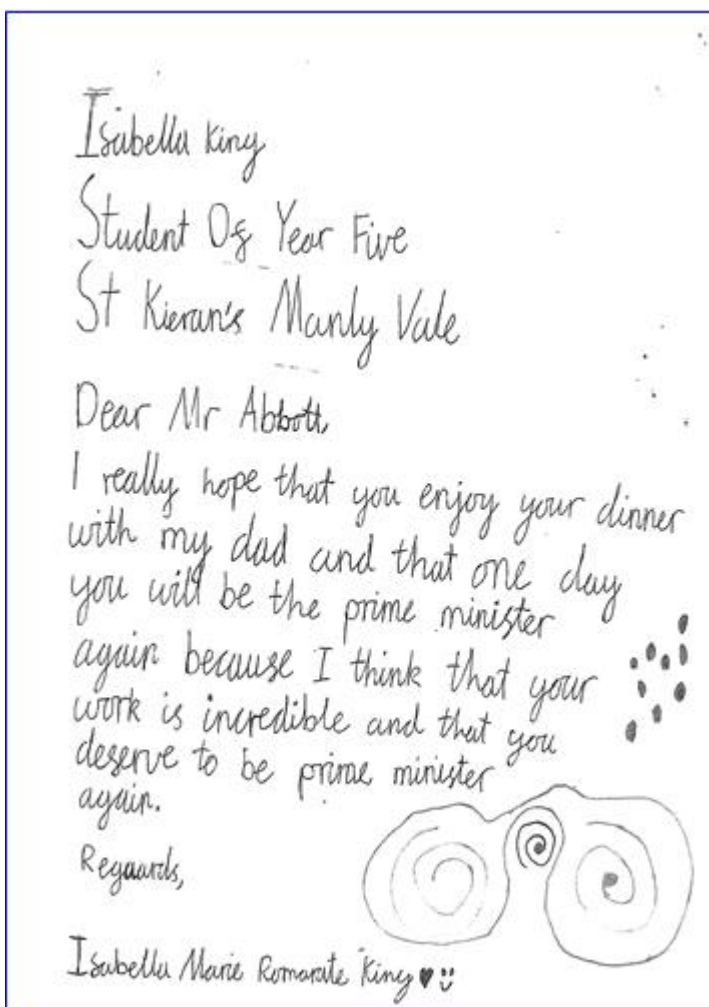 Isabella King
Student Of Year Five
St Kieran's Manly Vale
Dear Mr Abbott,
I really hope that you enjoy your dinner
with my dad and that one day
you will be the prime minister
again because I think that your
work is incredible and that you
deserve to be prime minister
again.
Regaards,
Isabella Marie Romarate King ♥ :)